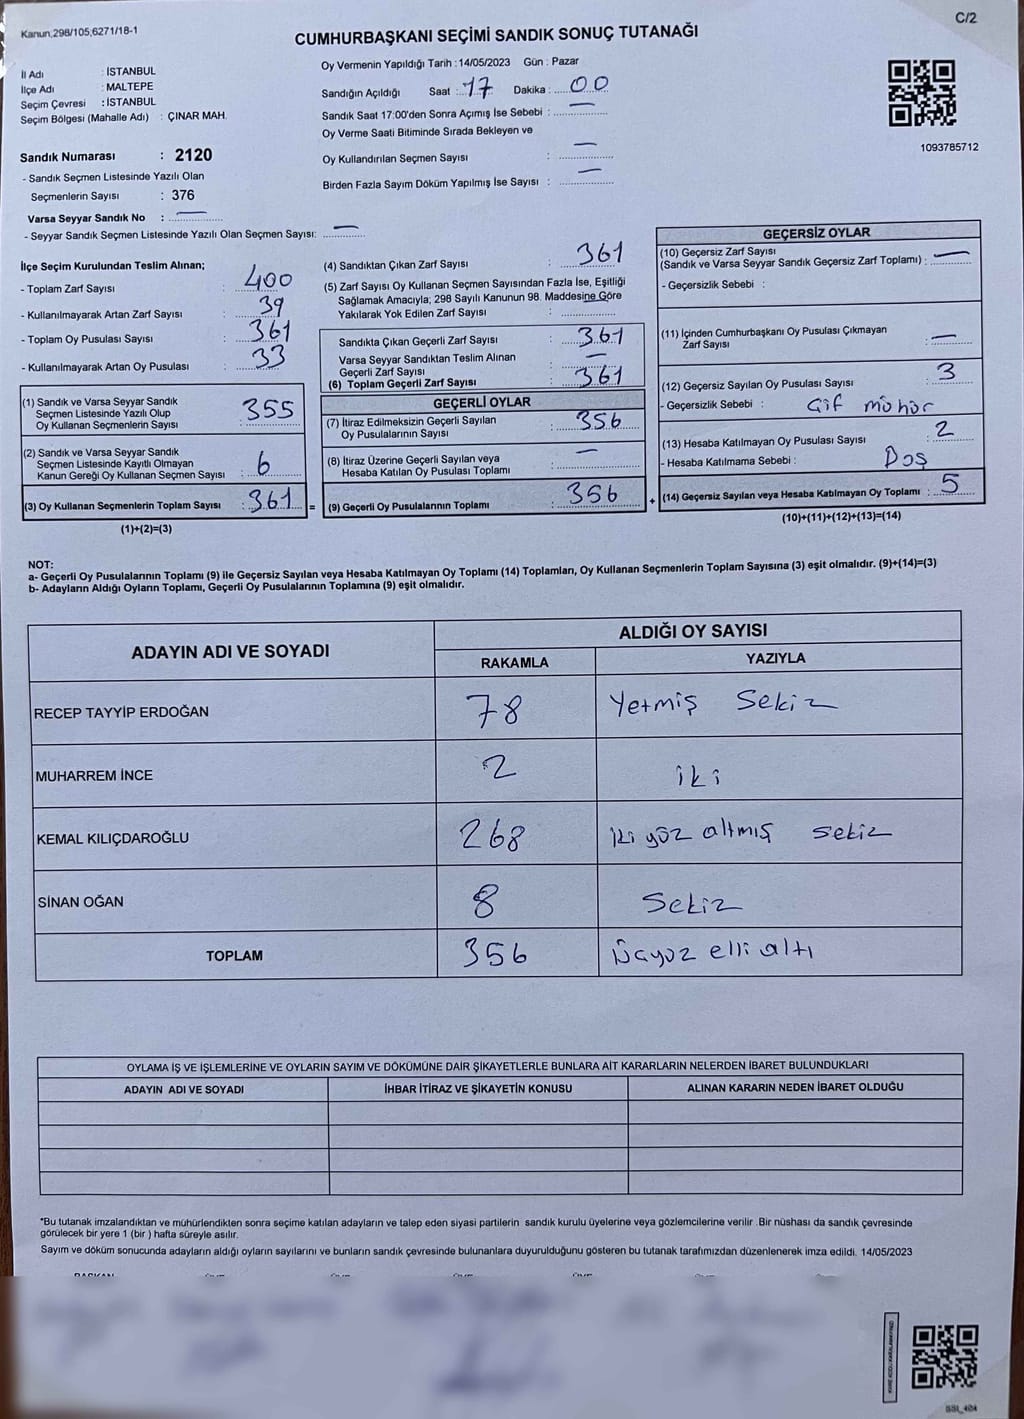 Kanun,298/105,6271/18-1
C/2
CUMHURBAŞKANI SEÇİMİ SANDIK SONUÇ TUTANAĞI
İl Adı : İSTANBUL
İlçe Adı : MALTEPE
Seçim Çevresi : İSTANBUL
Seçim Bölgesi (Mahalle Adı) : ÇINAR MAH.
Sandık Numarası : 2120
- Sandık Seçmen Listesinde Yazılı Olan
Seçmenlerin Sayısı : 376
Varsa Seyyar Sandık No : —
- Seyyar Sandık Seçmen Listesinde Yazılı Olan Seçmen Sayısı: —
Oy Vermenin Yapıldığı Tarih : 14/05/2023 Gün : Pazar
Sandığın Açıldığı Saat : 17 Dakika : 00
Sandık Saat 17:00'den Sonra Açımış İse Sebebi : —
Oy Verme Saati Bitiminde Sırada Bekleyen ve
Oy Kullandırılan Seçmen Sayısı : —
Birden Fazla Sayım Döküm Yapılmış İse Sayısı : —
1093785712
İlçe Seçim Kurulundan Teslim Alınan;
- Toplam Zarf Sayısı : 400
- Kullanılmayarak Artan Zarf Sayısı : 39
- Toplam Oy Pusulası Sayısı : 361
- Kullanılmayarak Artan Oy Pusulası : 33
(1) Sandık ve Varsa Seyyar Sandık
Seçmen Listesinde Yazılı Olup
Oy Kullanan Seçmenlerin Sayısı : 355
(2) Sandık ve Varsa Seyyar Sandık
Seçmen Listesinde Kayıtlı Olmayan
Kanun Gereği Oy Kullanan Seçmen Sayısı : 6
(3) Oy Kullanan Seçmenlerin Toplam Sayısı : 361 =
(1)+(2)=(3)
(4) Sandıktan Çıkan Zarf Sayısı : 361
(5) Zarf Sayısı Oy Kullanan Seçmen Sayısından Fazla İse, Eşitliği
Sağlamak Amacıyla; 298 Sayılı Kanunun 98. Maddesine Göre
Yakılarak Yok Edilen Zarf Sayısı : —
Sandıkta Çıkan Geçerli Zarf Sayısı : 361
Varsa Seyyar Sandıktan Teslim Alınan
Geçerli Zarf Sayısı : —
(6) Toplam Geçerli Zarf Sayısı : 361
GEÇERLİ OYLAR
(7) İtiraz Edilmeksizin Geçerli Sayılan
Oy Pusulalarının Sayısı : 356
(8) İtiraz Üzerine Geçerli Sayılan veya
Hesaba Katılan Oy Pusulası Toplamı : —
(9) Geçerli Oy Pusulalarının Toplamı : 356 +
GEÇERSİZ OYLAR
(10) Geçersiz Zarf Sayısı
(Sandık ve Varsa Seyyar Sandık Geçersiz Zarf Toplamı) : —
- Geçersizlik Sebebi :
(11) İçinden Cumhurbaşkanı Oy Pusulası Çıkmayan
Zarf Sayısı : —
(12) Geçersiz Sayılan Oy Pusulası Sayısı : 3
- Geçersizlik Sebebi : Çif mühür
(13) Hesaba Katılmayan Oy Pusulası Sayısı : 2
- Hesaba Katılmama Sebebi : Boş
(14) Geçersiz Sayılan veya Hesaba Katılmayan Oy Toplamı : 5
(10)+(11)+(12)+(13)=(14)
NOT:
a- Geçerli Oy Pusulalarının Toplamı (9) ile Geçersiz Sayılan veya Hesaba Katılmayan Oy Toplamı (14) Toplamları, Oy Kullanan Seçmenlerin Toplam Sayısına (3) eşit olmalıdır. (9)+(14)=(3)
b- Adayların Aldığı Oyların Toplamı, Geçerli Oy Pusulalarının Toplamına (9) eşit olmalıdır.
ADAYIN ADI VE SOYADI
ALDIĞI OY SAYISI
RAKAMLA YAZIYLA
RECEP TAYYİP ERDOĞAN 78 Yetmiş Sekiz
MUHARREM İNCE 2 iki
KEMAL KILIÇDAROĞLU 268 iki yüz altmış sekiz
SİNAN OĞAN 8 Sekiz
TOPLAM 356 Üçyüz elli altı
OYLAMA İŞ VE İŞLEMLERİNE VE OYLARIN SAYIM VE DÖKÜMÜNE DAİR ŞİKAYETLERLE BUNLARA AİT KARARLARIN NELERDEN İBARET BULUNDUKLARI
ADAYIN ADI VE SOYADI İHBAR İTİRAZ VE ŞİKAYETİN KONUSU ALINAN KARARIN NEDEN İBARET OLDUĞU
*Bu tutanak imzalandıktan ve mühürlendikten sonra seçime katılan adayların ve talep eden siyasi partilerin sandık kurulu üyelerine veya gözlemcilerine verilir .Bir nüshası da sandık çevresinde
görülecek bir yere 1 (bir ) hafta süreyle asılır.
Sayım ve döküm sonucunda adayların aldığı oyların sayılarını ve bunların sandık çevresinde bulunanlara duyurulduğunu gösteren bu tutanak tarafımızdan düzenlenerek imza edildi. 14/05/2023